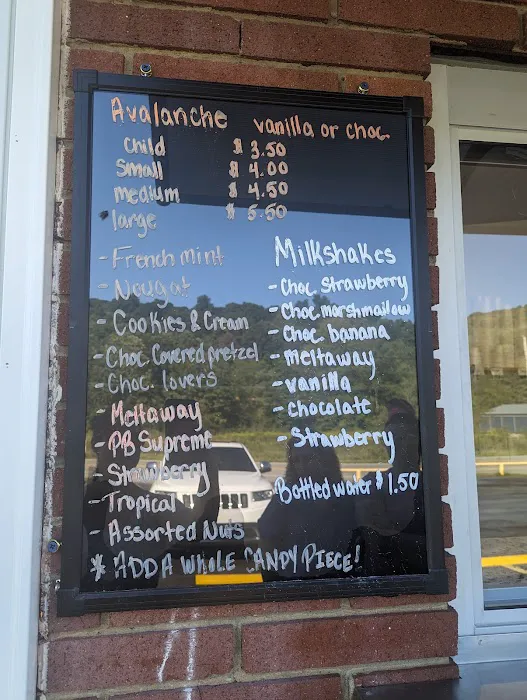 Avalanche vanilla or choc
Child $ 3.50
Small $ 4.00
medium $ 4.50
large $ 5.50
- French mint
- Nougat
- Cookies & Cream
- Choc Covered pretzel
- Choc. lovers
- Meltaway
- PB Supreme
- Strawberry
- Tropical
- Assorted Nuts
Milkshakes
- Choc Strawberry
- Choc marshmallow
- Choc banana
- meltaway
- vanilla
- chocolate
- Strawberry
Bottled water $ 1.50
* ADD A WHOLE CANDY PIECE!